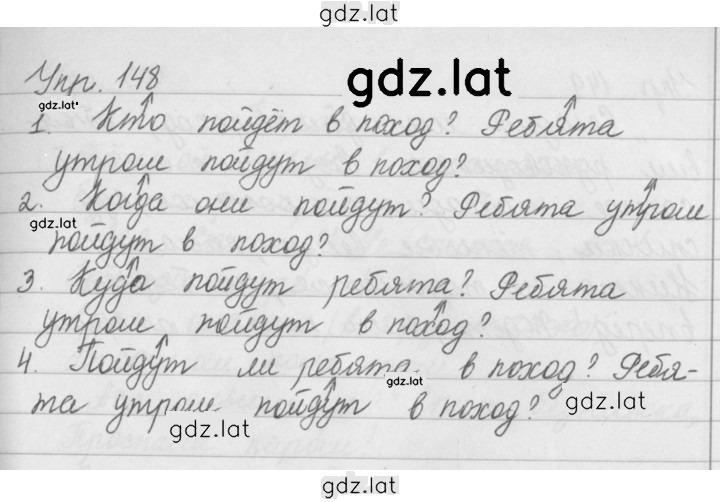 gdz.lat
Упр. 148
gdz.lat
gdz.lat
1. Кто пойдёт в поход? Ребята
утром пойдут в поход?
2. Когда они пойдут? Ребята утром
gdz.lat
пойдут в поход?
3. Куда пойдут ребята? Ребята
утром пойдут в поход?
4. Пойдут ли ребята в поход? Ребя-
gdz.lat
та утром пойдут в поход?
gdz.lat
gdz.lat
gdz.lat